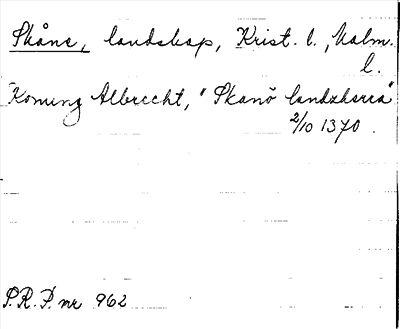 Skåne, landskap, Krist. l., Malm.
l.
Konung Albrecht, "Skanö landzhærra"
2/10 1370.
S.R.P. nr 962